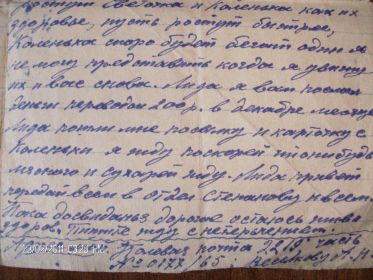 ростут Светочка и Коленька как их
здоровье, пусть ростут быстрее,
Коленька скоро будет бегат один я
не могу представить когда я увижу
их и вас снова. Лида я вам послал
деньги переводом 200 р. в декабре месяце
Лида пошли мне посылку и карточку с
Коленьки я жду поскорей что нибудь
мясного и сухарей жду. Лида привет
передай всем в отдел Степанову и всем.
Пока досвиданье дорогие остаюсь жив и
здоров. Пишите жду с нетерпением.
Полевая почта 2819 часть
23/09/2011